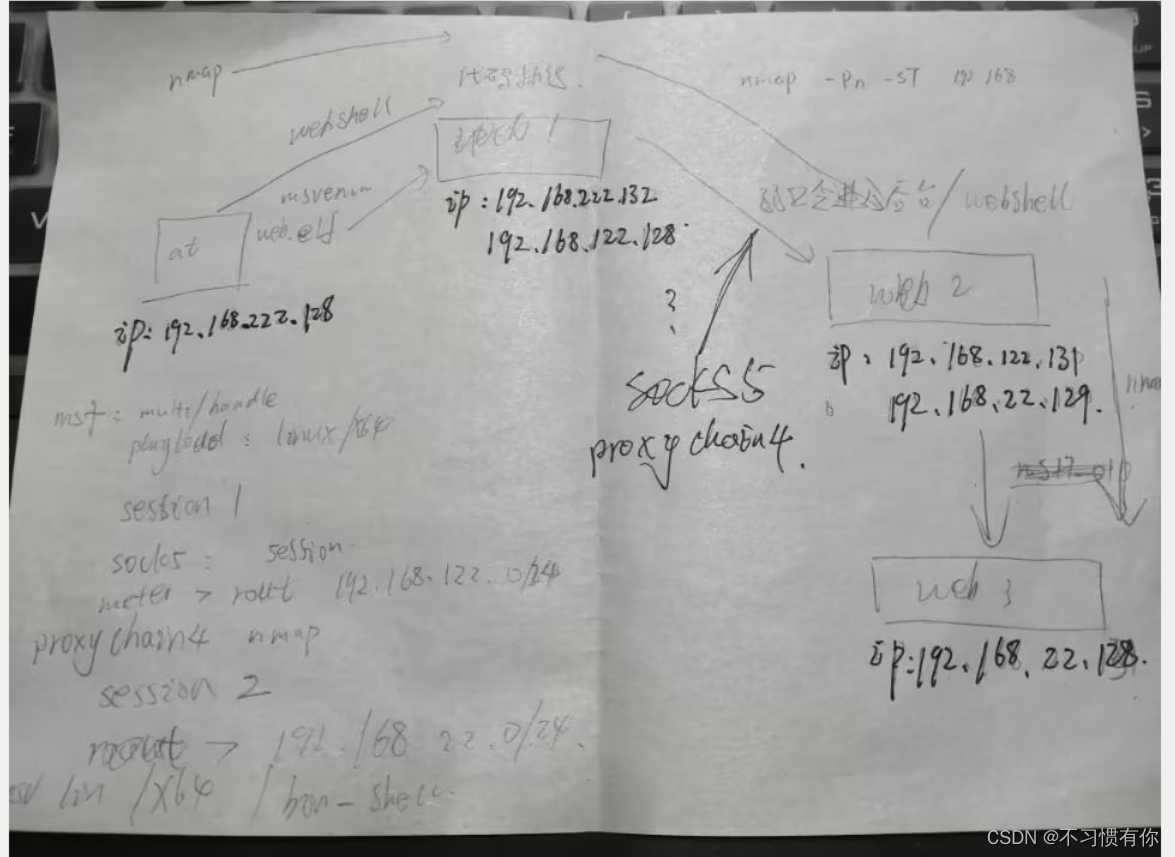 nmap
代码执行.
nmap -Pn -sT 192 168
webshell
msvenom
web.elf
at
ip: 192.168.222.128
1
ip: 192.168.222.132
192.168.122.128
后台/webshell
web 2
ip: 192.168.122.131
192.168.22.129.
?
socks5
proxychain4.
msf: multi/handle
playload: linux/x64
session 1
sock5: session
meter > rout 192.168.122.0/24
proxychain4 nmap
session 2
rout > 192.168 22.0/24.
lin /x64 /
web 3
ip:192.168.22.128.
CSDN @不习惯有你